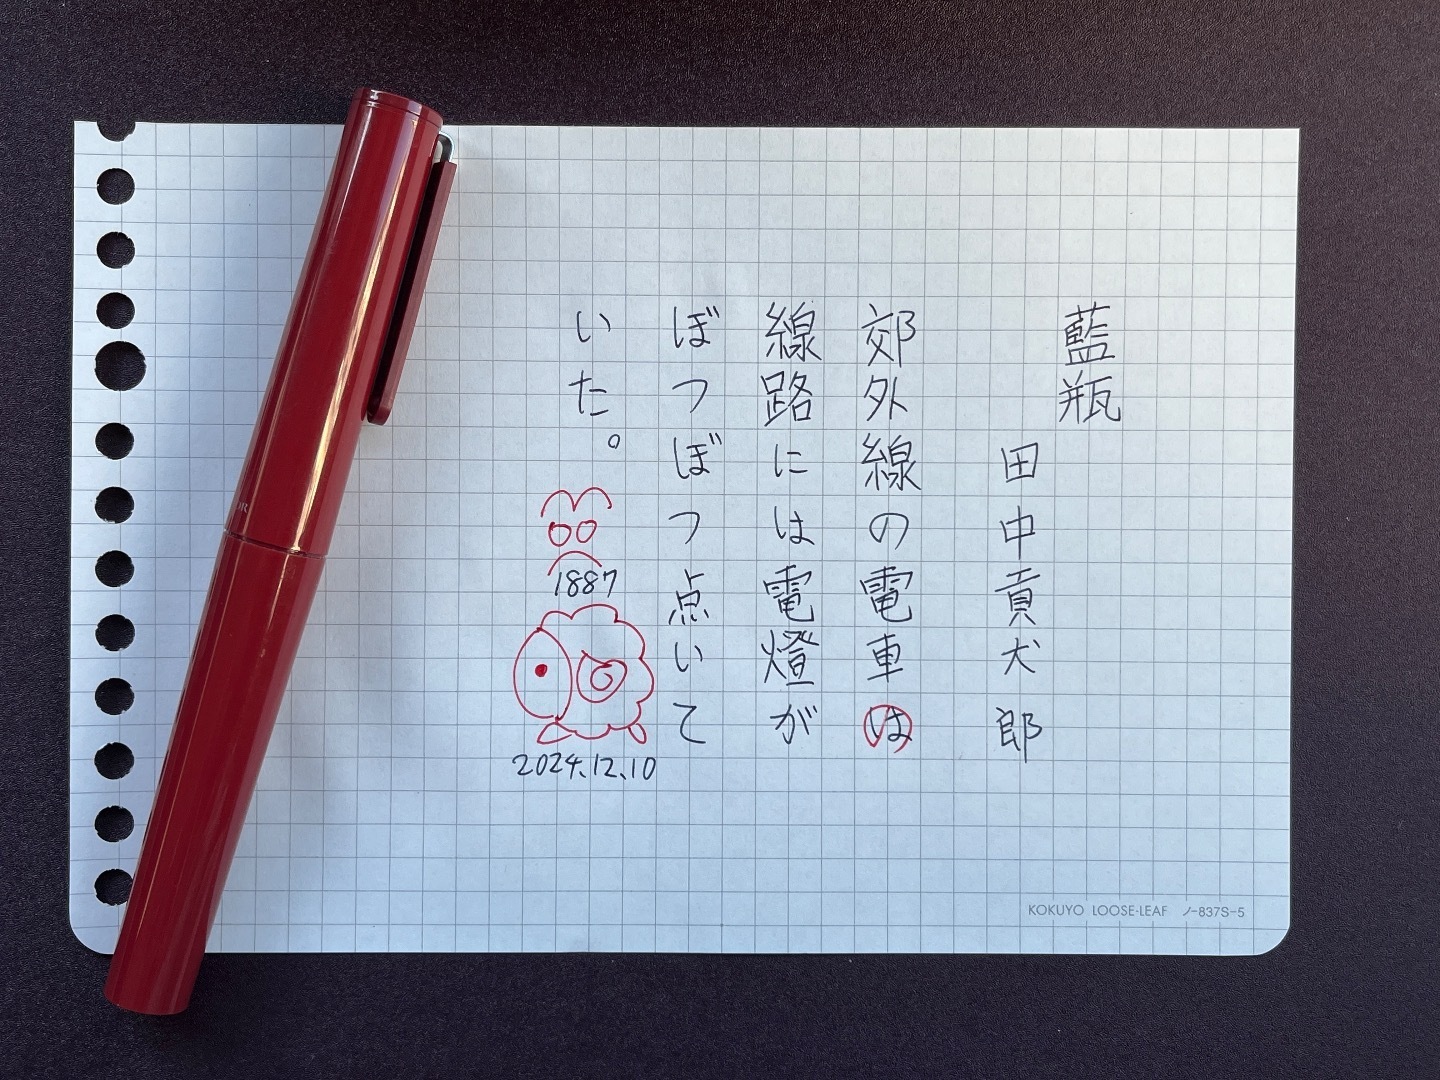 藍瓶
田中貢犬郎
郊外線の電車は
線路には電燈が
ぼつぼつ点いて
いた。
1887
2024.12.10
KOKUYO LOOSE-LEAF ノ-837S-5